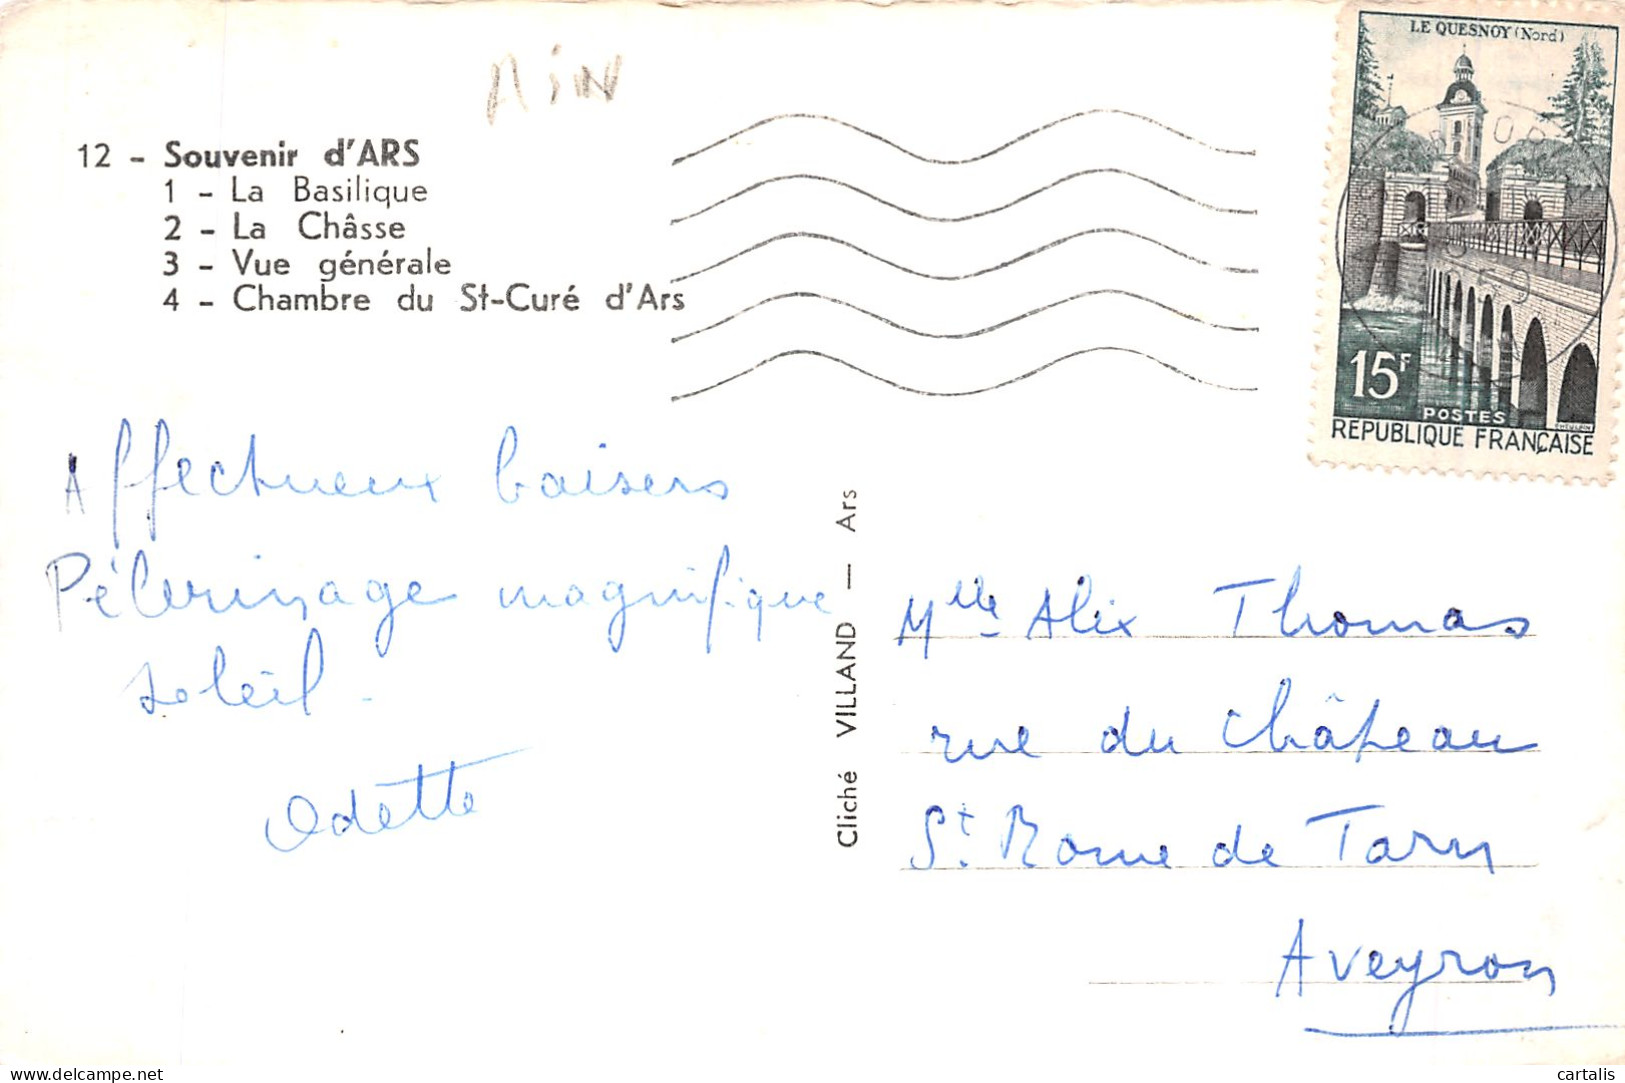 Ain
12 - Souvenir d'ARS
1 - La Basilique
2 - La Châsse
3 - Vue générale
4 - Chambre du St-Curé d'Ars
LE QUESNOY (Nord)
15F
POSTES
REPUBLIQUE FRANÇAISE
Affectueux baisers
Pélerinage magnifique
soleil -
Odette
Cliché VILLAND — Ars
Mlle Alix Thomas
rue du Château
St. Rome de Tarn
Aveyron
delcampe.net
cartalis